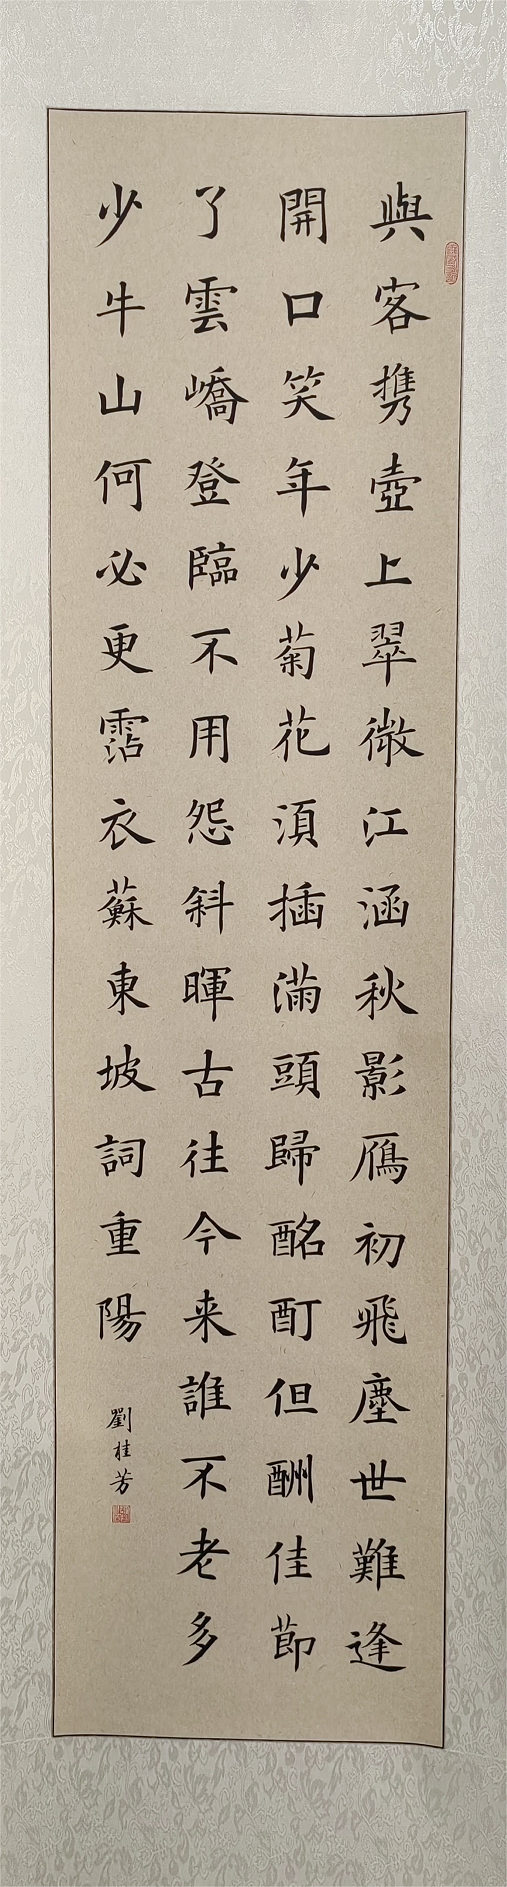 與客携壺上翠微江涵秋影鴈初飛塵世難逢
開口笑年少菊花須插滿頭歸酩酊但酬佳節
了雲嶠登臨不用怨斜暉古往今来誰不老多
少牛山何必更霑衣蘇東坡詞重陽
劉桂芳